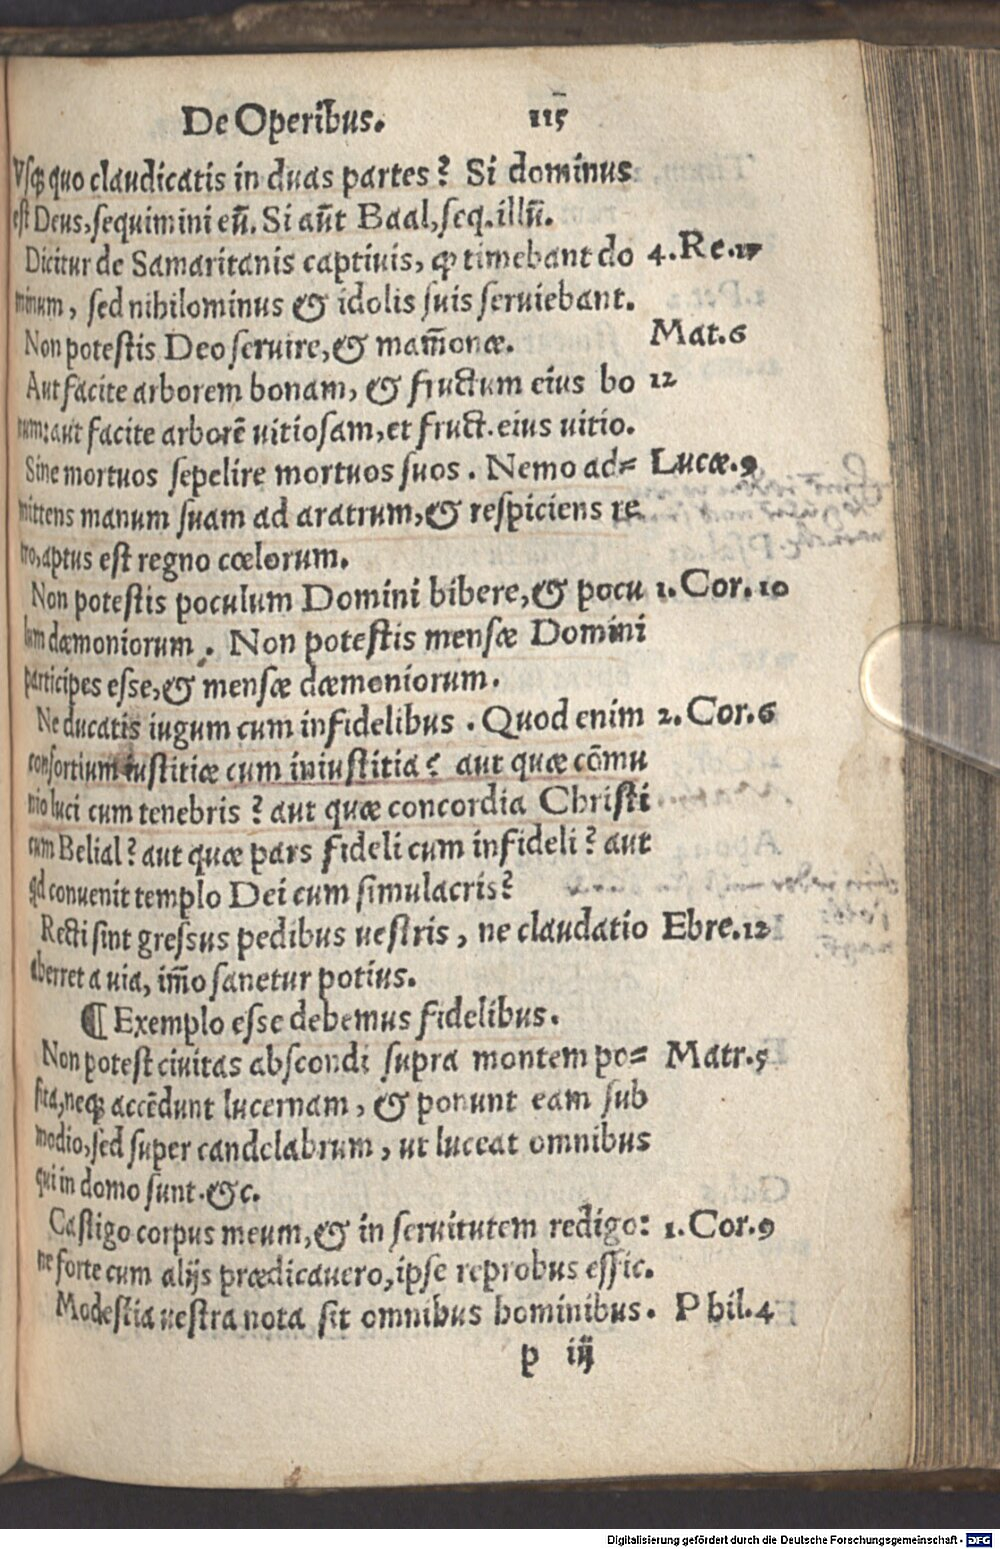 De Operibus. 115
Vsq; quo claudicatis in duas partes? Si dominus
est Deus, sequimini eū. Si aūt Baal, seq. illū.
Dicitur de Samaritanis captiuis, ꝙ timebant do 4. Re. 17
minum, sed nihilominus & idolis suis seruiebant.
Non potestis Deo seruire, & mam̄onæ. Mat. 6
Aut facite arborem bonam, & fructum eius bo 12
num: aut facite arborē uitiosam, et fruct. eius uitio.
Sine mortuos sepelire mortuos suos. Nemo ad= Lucæ. 9
mittens manum suam ad aratrum, & respiciens re
tro, aptus est regno cœlorum.
Non potestis poculum Domini bibere, & pocu 1. Cor. 10
lum dæmoniorum. Non potestis mensæ Domini
participes esse, & mensæ dæmoniorum.
Ne ducatis iugum cum infidelibus. Quod enim 2. Cor. 6
consortium iustitiæ cum iniustitia? aut quæ cōmu
nio luci cum tenebris? aut quæ concordia Christi
cum Belial? aut quæ pars fideli cum infideli? aut
qd conuenit templo Dei cum simulacris?
Recti sint gressus pedibus uestris, ne claudatio Ebre. 12
aberret a uia, im̄o sanetur potius.
¶ Exemplo esse debemus fidelibus.
Non potest ciuitas abscondi supra montem po= Matt. 5
sita, neq; accēdunt lucernam, & ponunt eam sub
modio, sed super candelabrum, ut luceat omnibus
qui in domo sunt. &c.
Castigo corpus meum, & in seruitutem redigo: 1. Cor. 9
ne forte cum alijs prædicauero, ipse reprobus effic.
Modestia uestra nota sit omnibus hominibus. Phil. 4
p iij
Digitalisierung gefördert durch die Deutsche Forschungsgemeinschaft - DFG